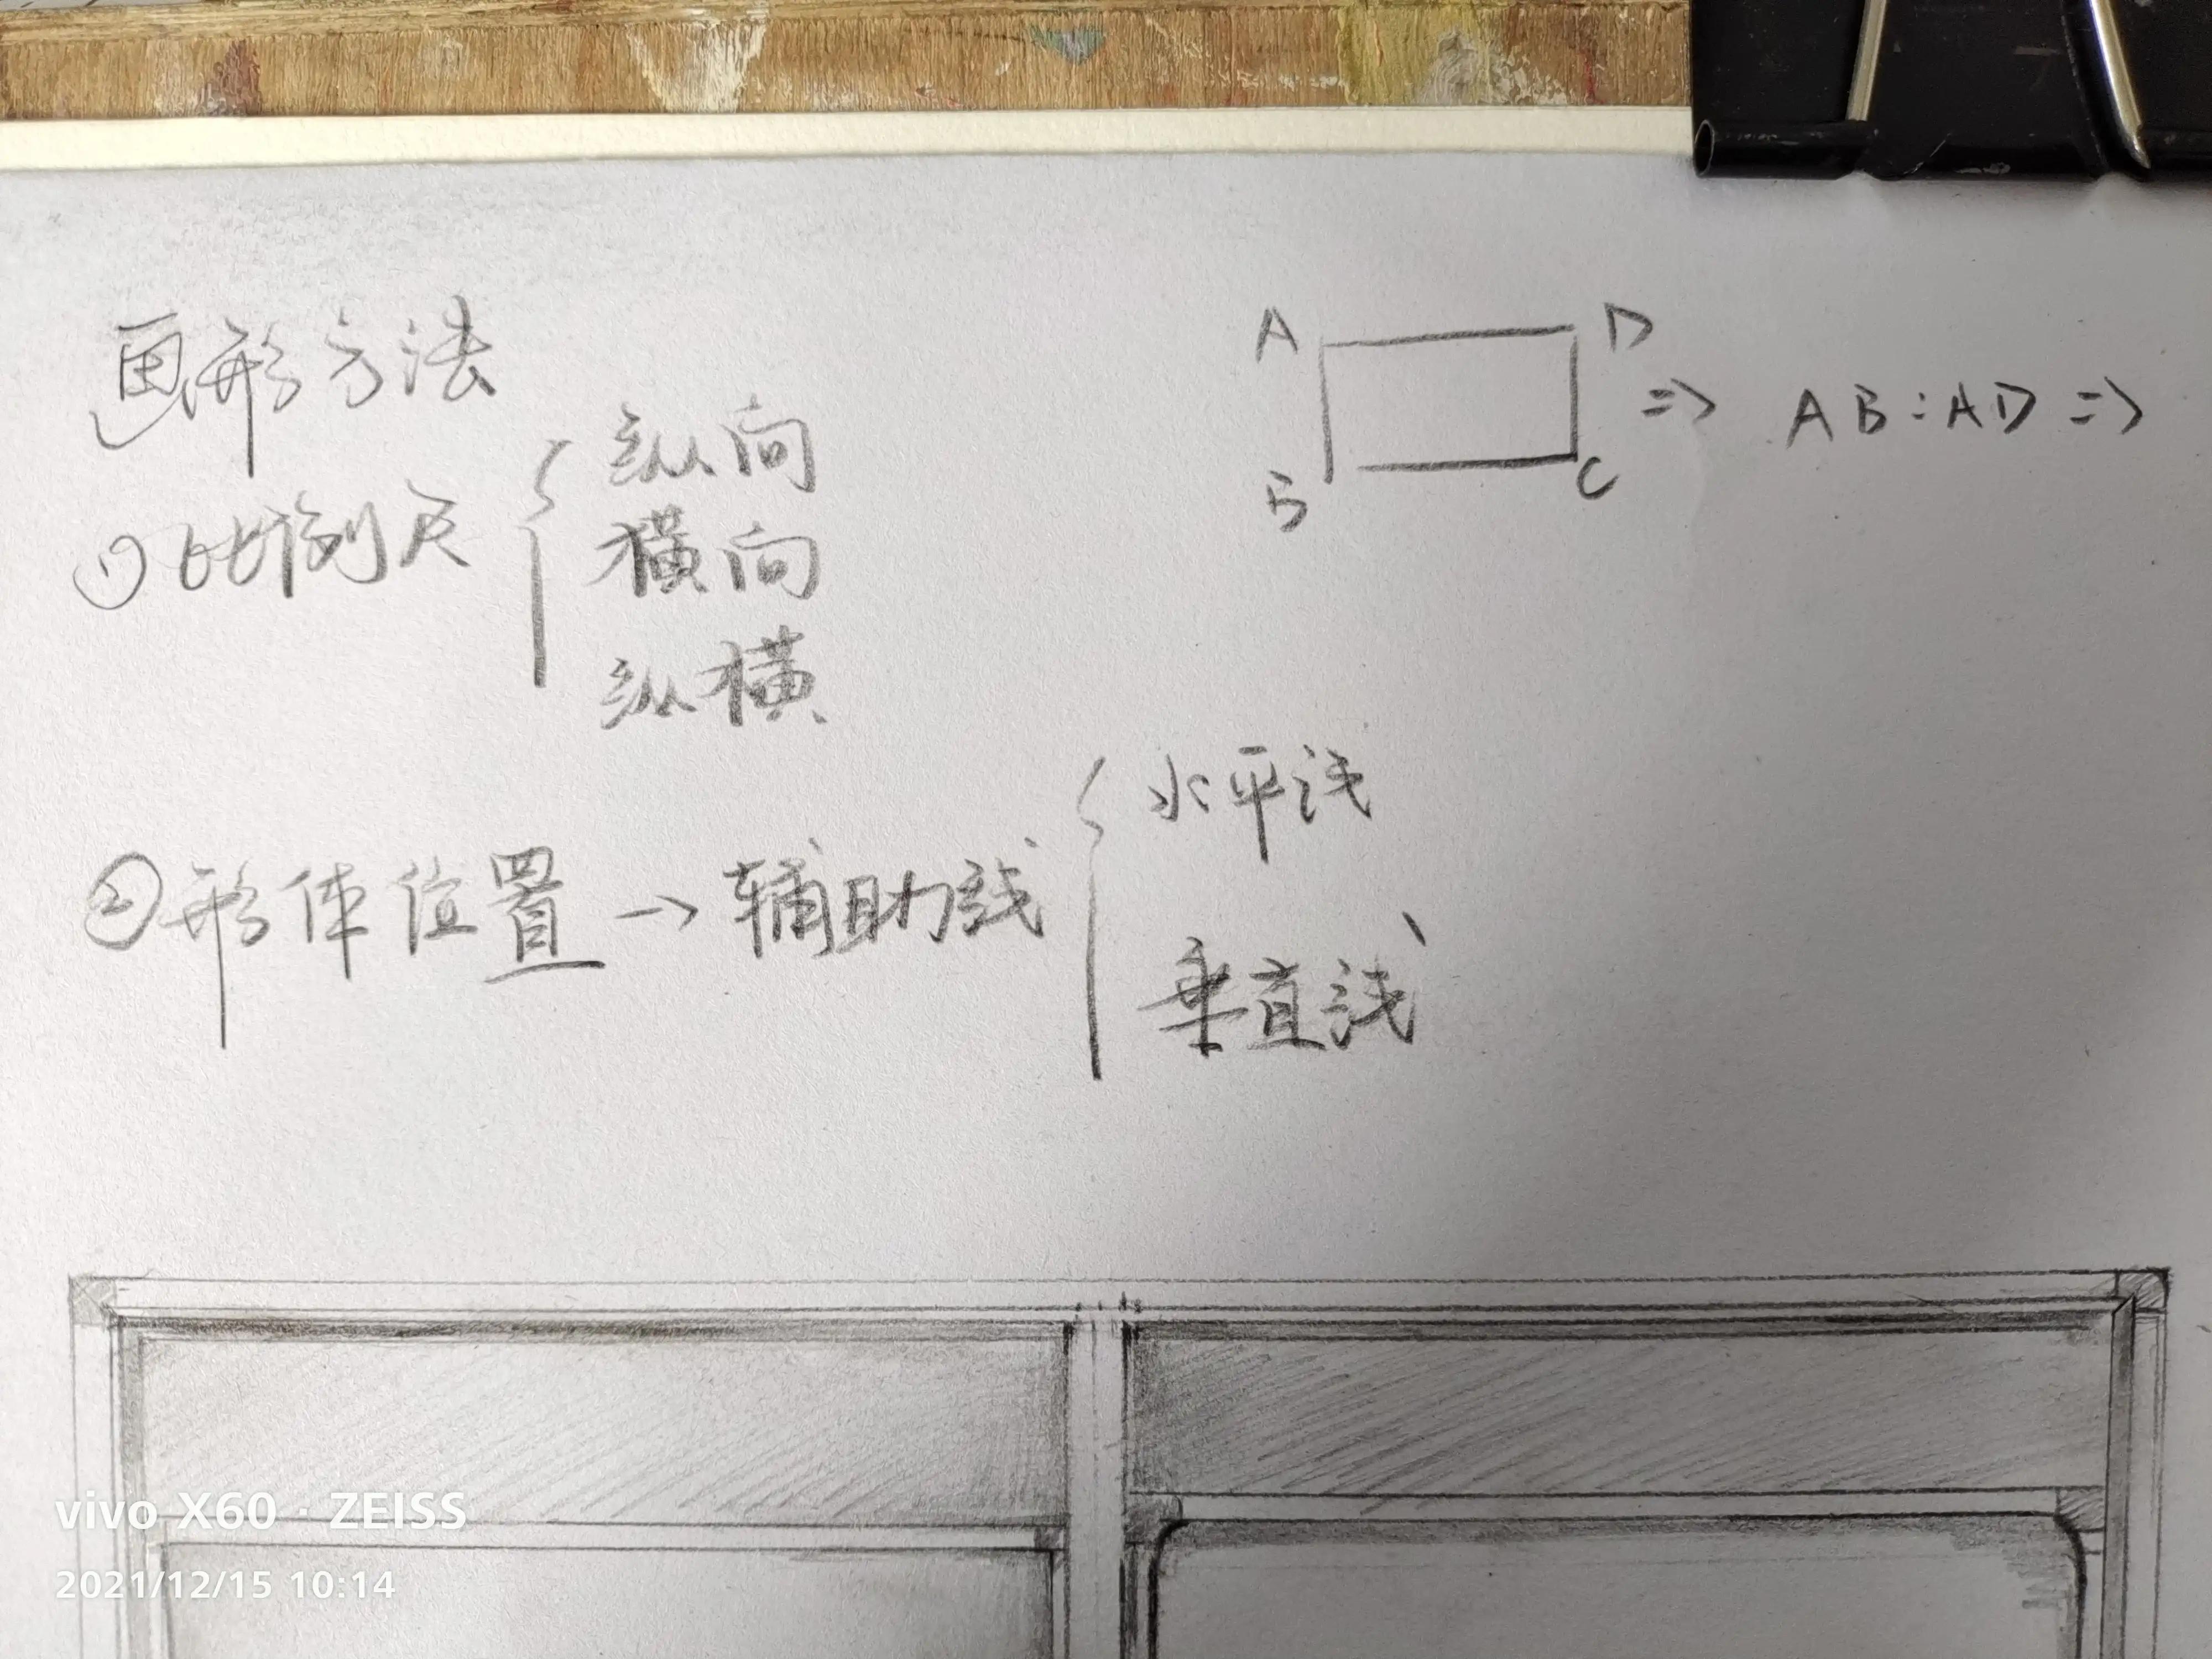 画形方法
①比例尺
纵向
横向
纵横
A D
B C
=> AB:AD =>
②形体位置→辅助线
水平线
垂直线
vivo X60 · ZEISS
2021/12/15 10:14